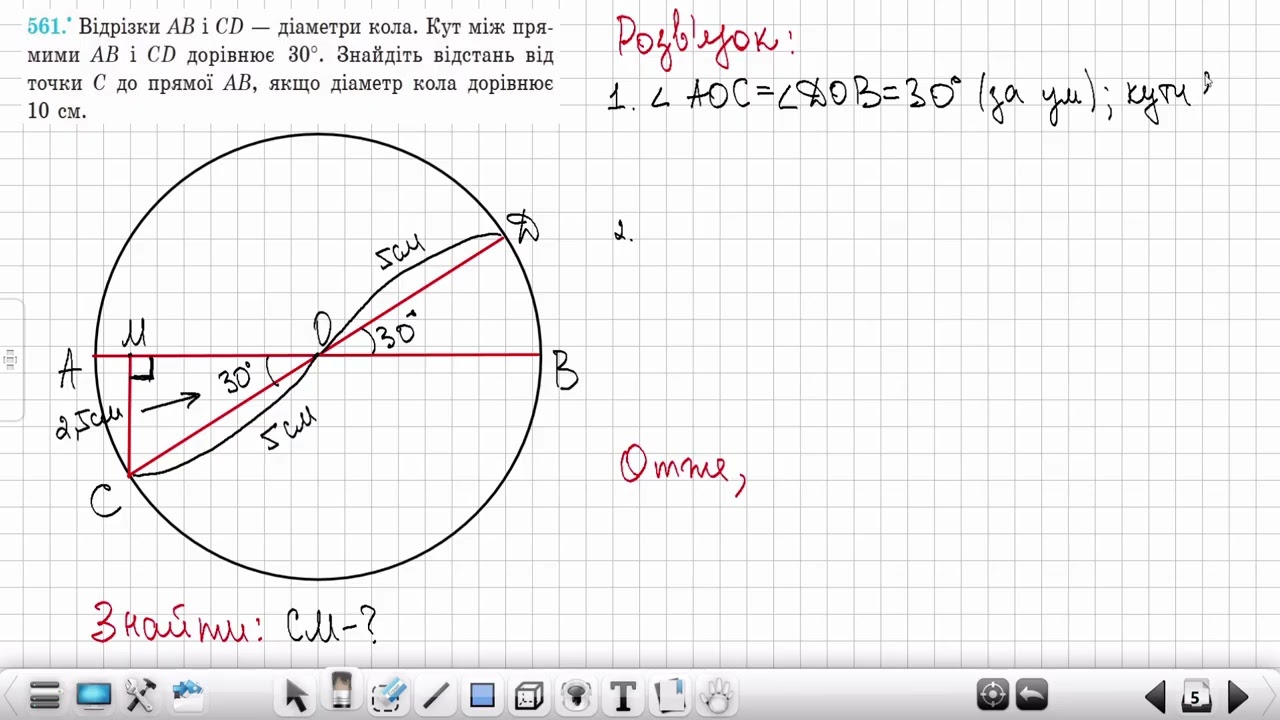 561.• Відрізки AB і CD — діаметри кола. Кут між пря-
мими AB і CD дорівнює 30°. Знайдіть відстань від
точки C до прямої AB, якщо діаметр кола дорівнює
10 см.
Розв'язок:
1. ∠ AOC=∠DOB=30° (за ум); кути
2.
D
5см
M
O
30°
A
30°
B
2,5см
5см
C
Отже,
Знайти: CM-?
5